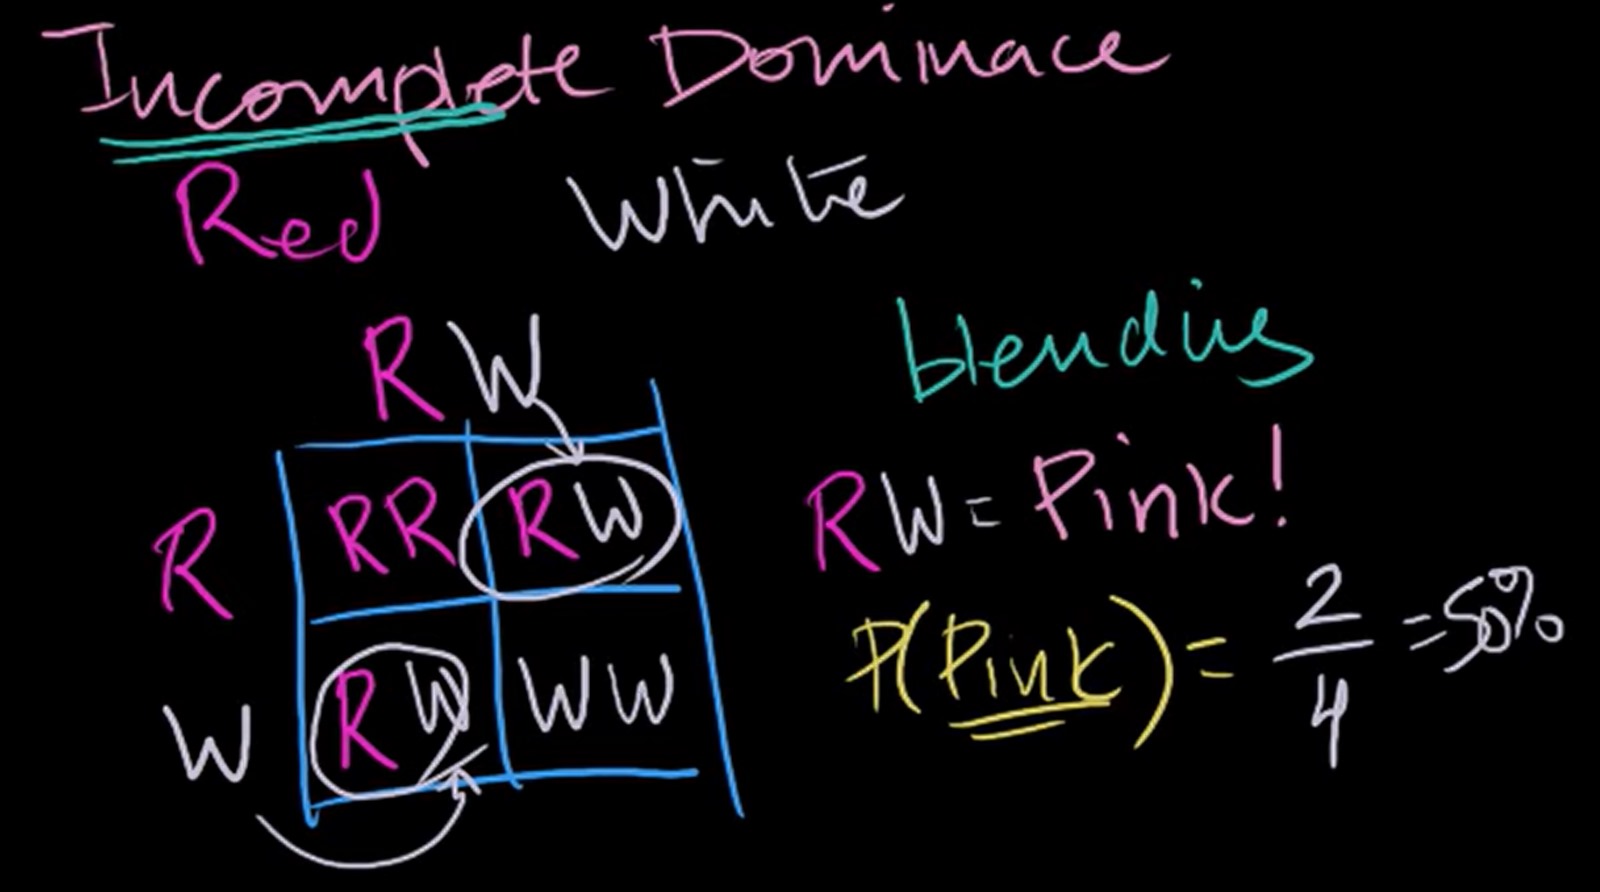 Incomplete Dominace
Red White
blending
R W
R RR RW
W RW WW
RW = Pink!
P(Pink) = 2/4 = 50%